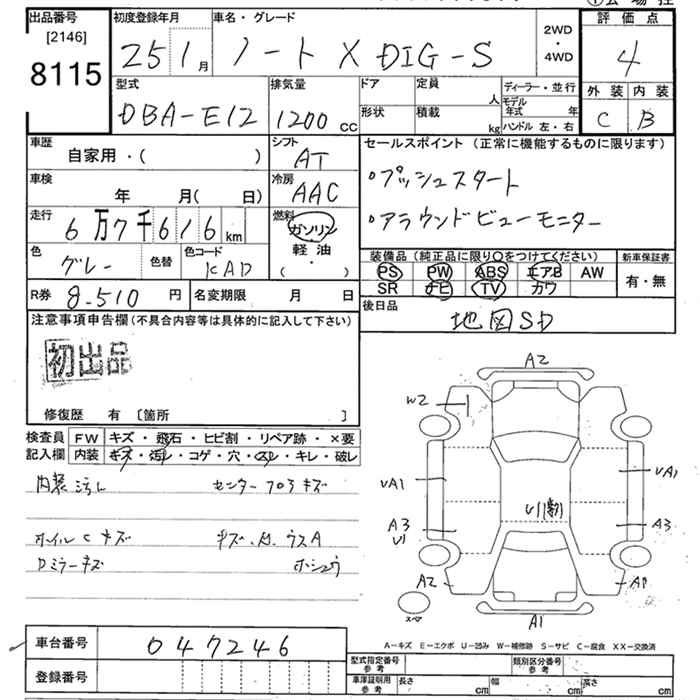 出品番号
[2146]
8115
初度登録年月
25 1月
車名・グレード
ノート X DIG-S
2WD
・
4WD
評価点
4
外装 内装
C B
型式
DBA-E12
排気量
1200 CC
ドア
定員
人
形状
積載
kg
ディーラー・並行
モデル年式 年
ハンドル 左・右
車歴
自家用・( )
シフト
AT
車検
年 月( 日)
冷房
AAC
走行
6万7千616km
燃料
ガソリン
軽油
( ・ )
色
グレー
色替
色コード
KAD
R券 8-510 円
名変期限 月 日
セールスポイント(正常に機能するものに限ります)
・プッシュスタート
・アラウンドビューモニター
装備品(純正品に限り○をつけてください)
PS PW ABS エアB AW
SR ナビ TV カワ
新車保証書
有・無
後日品
地図SD
注意事項申告欄(不具合内容等は具体的に記入して下さい)
初出品
修復歴 有 [箇所 ]
検査員記入欄
FW キズ・飛石・ヒビ割・リペア跡・×要
内装 キズ・汚レ・コゲ・穴・スレ・キレ・破レ
内装汚レ センター フロア キズ
ホイルCキズ キズ、A、ウスA
Dミラーキズ ホシュウ
A2
W2
UA1
UA1
A3
U1
A3
A2
A1
A1
スペア
車台番号 047246
登録番号
A-キズ E-エクボ U-凹み W-補修跡 S-サビ C-腐食 XX-交換済
型式指定番号 参考
類別区分番号 参考
車庫証明用 参考
長さ cm
幅 cm
高さ cm